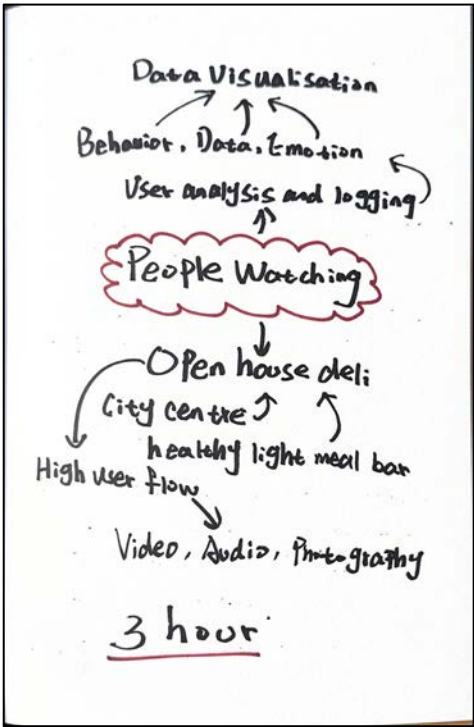 Data Visualisation
Behavior, Data, Emotion
User analysis and logging
People Watching
Open house deli
City centre
healthy light meal bar
High user flow
Video, Audio, Photography
3 hour